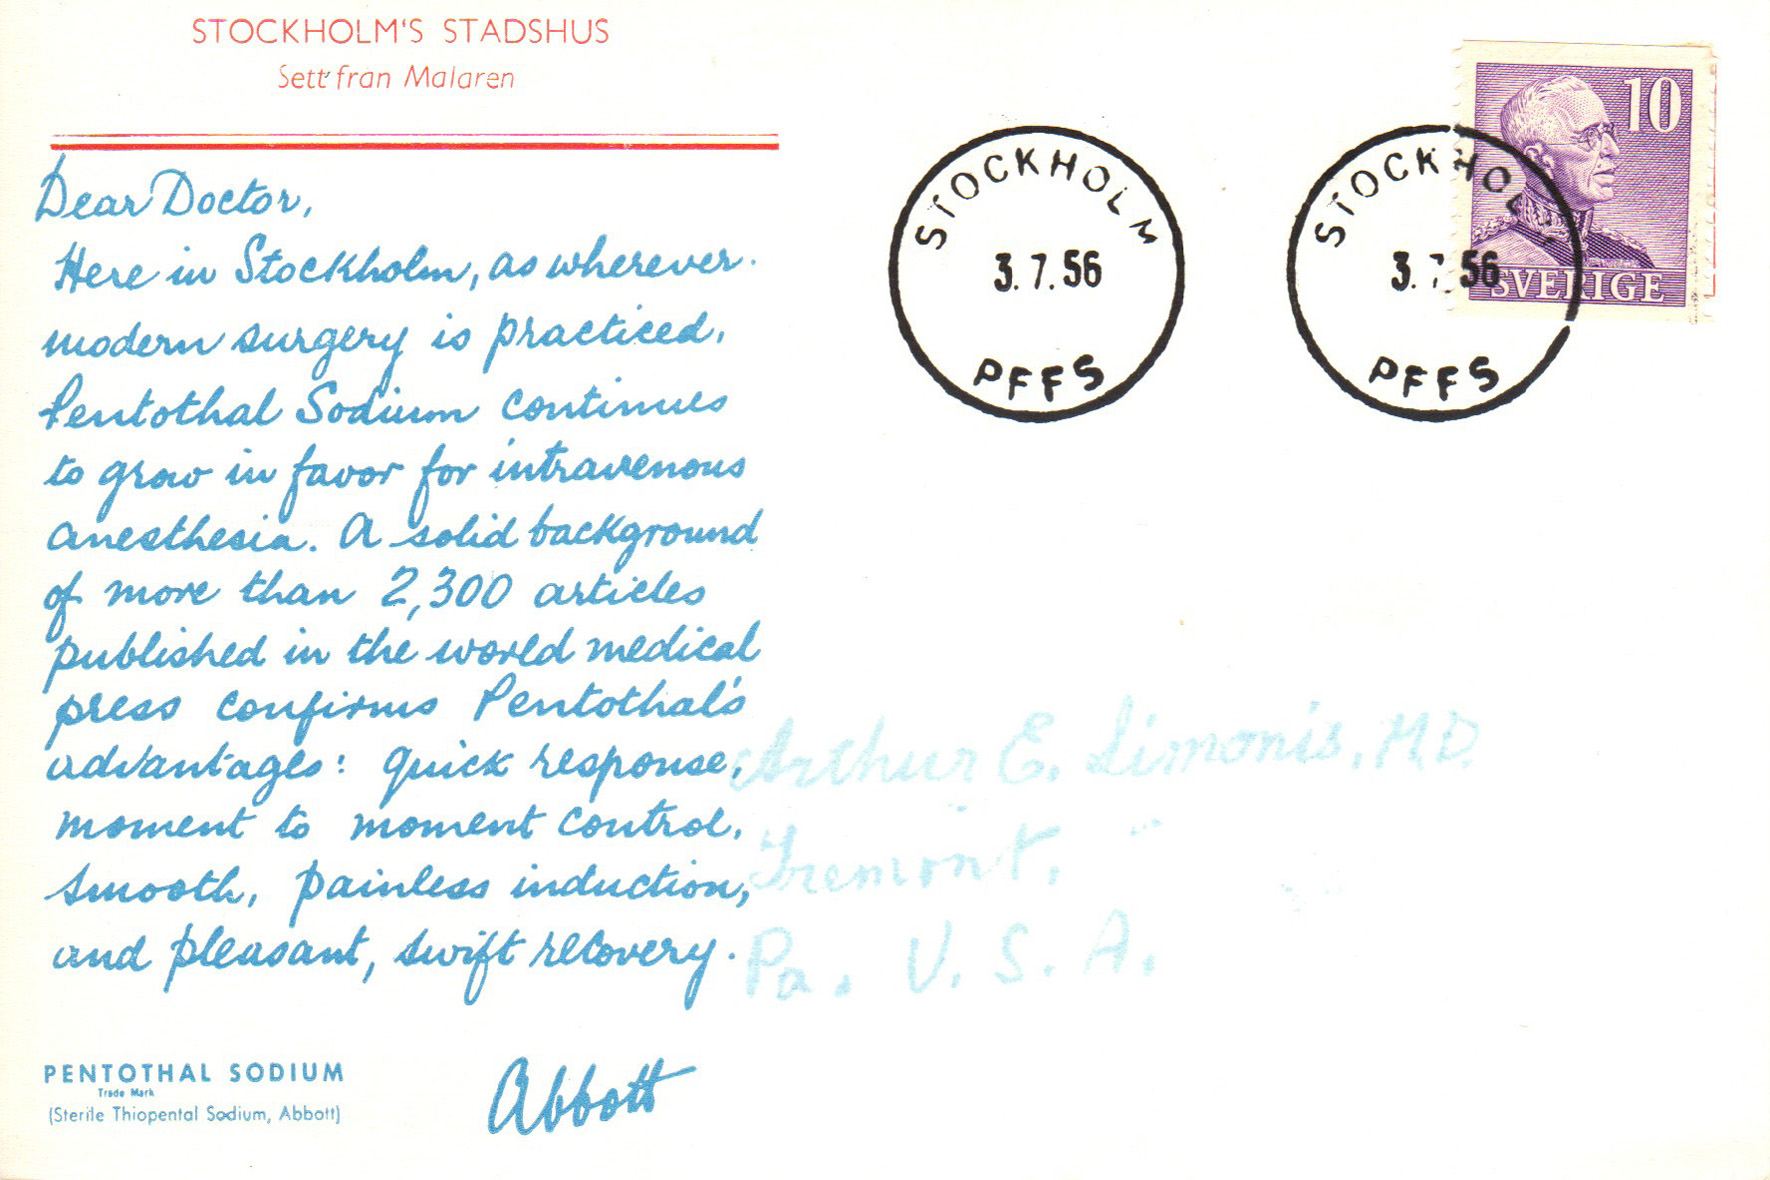 STOCKHOLM'S STADSHUS
Sett fran Malaren
Dear Doctor,
Here in Stockholm, as wherever
modern surgery is practiced,
Pentothal Sodium continues
to grow in favor for intravenous
anesthesia. A solid background
of more than 2,300 articles
published in the world medical
press confirms Pentothal's
advantages: quick response,
moment to moment control,
smooth, painless induction,
and pleasant, swift recovery.
PENTOTHAL SODIUM
Trade Mark
(Sterile Thiopental Sodium, Abbott)
Abbott
STOCKHOLM
3.7.56
PFFS
STOCKHOLM
3.7.56
PFFS
10
SVERIGE
Arthur E. Limonis, M.D.
Tremont,
Pa. U.S.A.